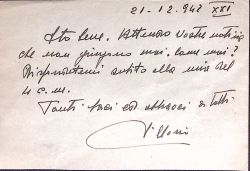 21-12-942 XXI
Sto bene. Attendo vostre notizie
che non giungono mai. Come mai?
Rispondetemi subito alla mia del
4 c.m.
Tanti baci ed abbracci a tutti